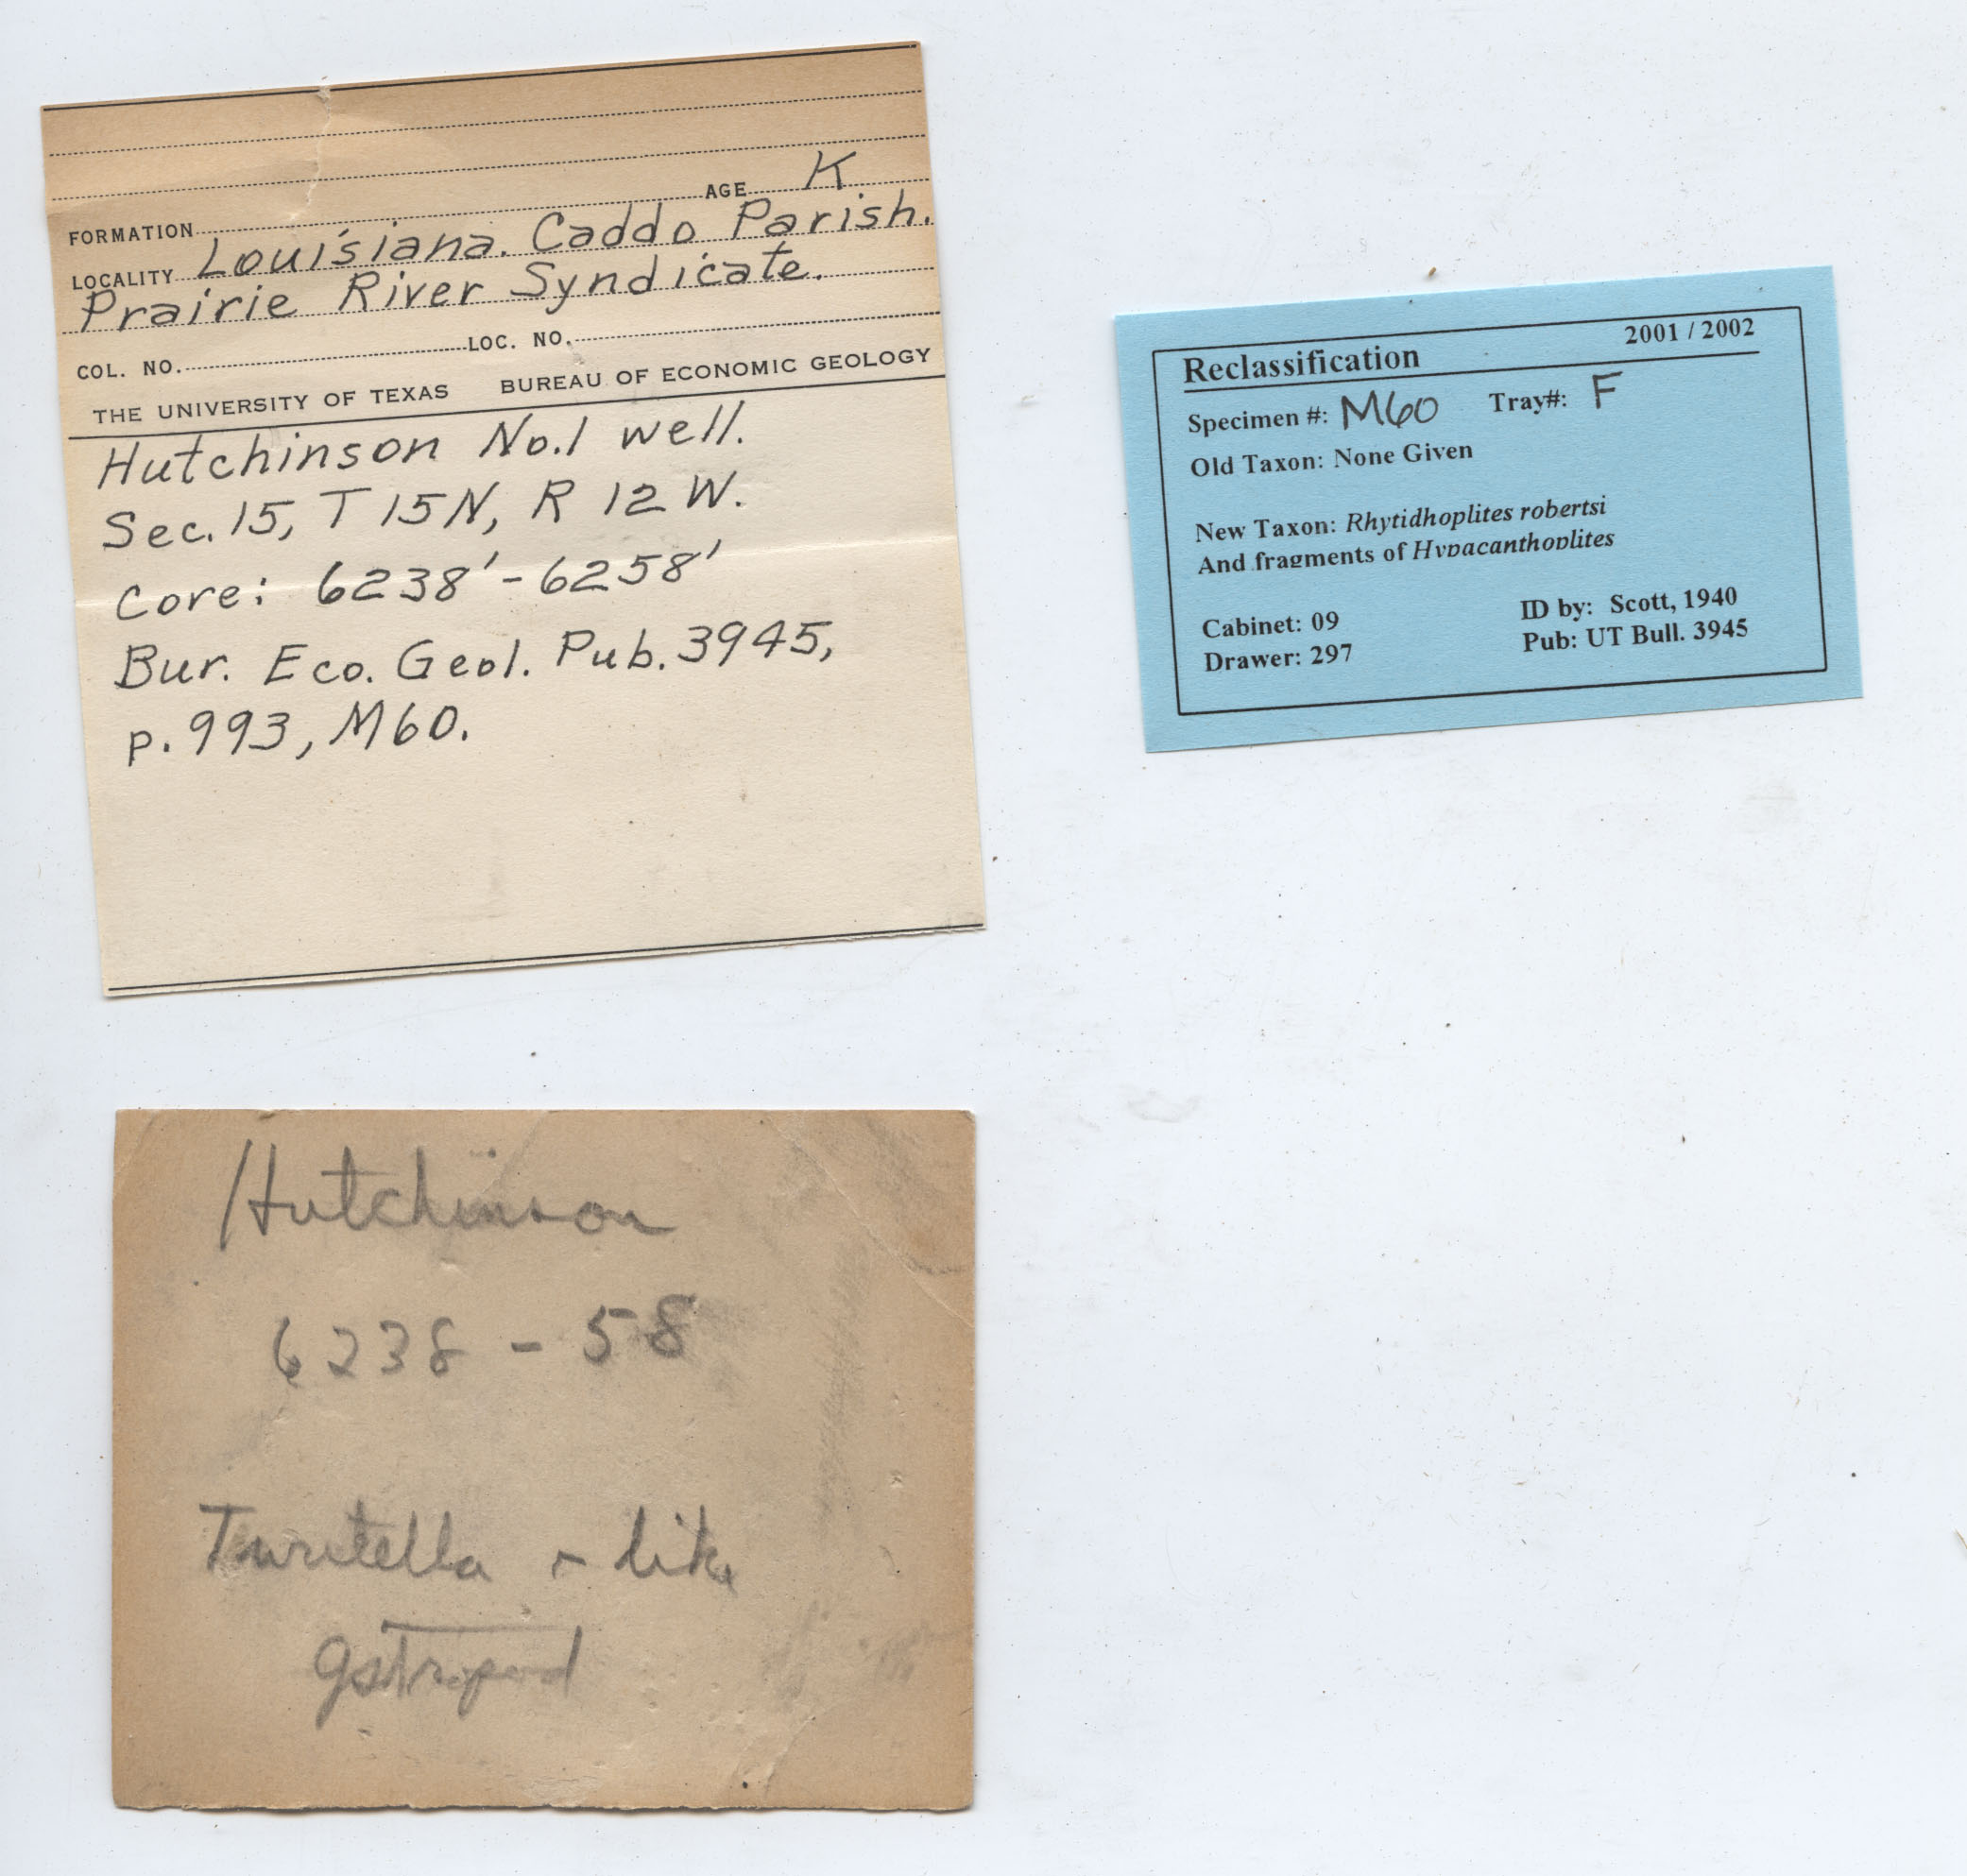 AGE K
FORMATION
LOCALITY Louisiana. Caddo Parish.
Prairie River Syndicate.
COL. NO. LOC. NO.
THE UNIVERSITY OF TEXAS BUREAU OF ECONOMIC GEOLOGY
Hutchinson No.1 well.
Sec.15, T15N, R 12 W.
Core: 6238'-6258'
Bur. Eco. Geol. Pub. 3945,
p. 993, M60.
2001 / 2002
Reclassification
Specimen #: M60 Tray#: F
Old Taxon: None Given
New Taxon: Rhytidhoplites robertsi
And fragments of Hypacanthoplites
Cabinet: 09 ID by: Scott, 1940
Drawer: 297 Pub: UT Bull. 3945
Hutchinson
6238 - 58
Turritella - like
gstropod